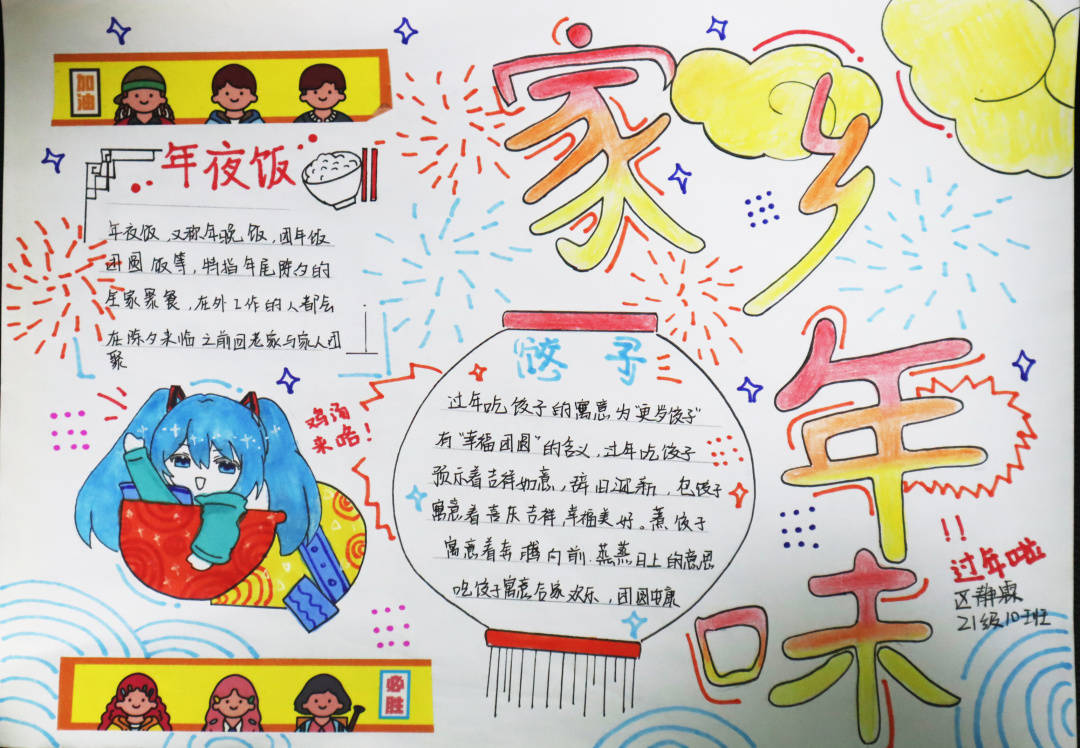 家乡
年味
加油
年夜饭
年夜饭,又称年晚饭,团年饭
团圆饭等,特指年尾除夕的
全家聚餐,在外工作的人都会
在除夕来临之前回老家与家人团
聚
鸡汤
来咯!
饺子
过年吃饺子的寓意为"更岁饺子"
有"幸福团圆"的含义,过年吃饺子
预示着吉祥如意,辞旧迎新,包饺子
寓意着喜庆吉祥,幸福美好。煮饺子
寓意着奔腾向前,蒸蒸日上的意思
吃饺子寓意合家欢乐,团圆安康
!!
过年啦
区静霖
21级10班
必胜